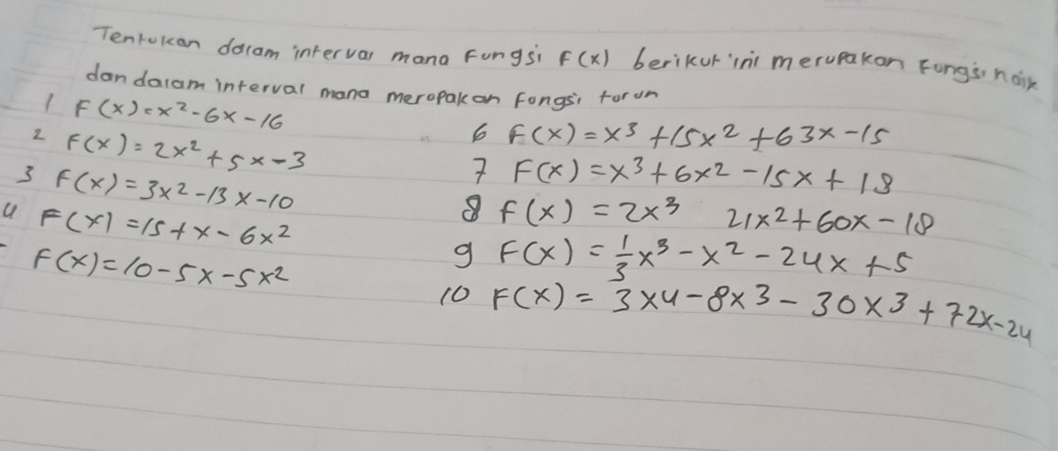 Tentukan dalam interval mana Fungsi F(x) berikut ini merupakan Fungsi naik
dan dalam interval mana merupakan fungsi turun
1 F(x) = x² - 6x - 16
2 F(x) = 2x² + 5x - 3
3 F(x) = 3x² - 13x - 10
4 F(x) = 15 + x - 6x²
- F(x) = 10 - 5x - 5x²
6 F(x) = x³ + 15x² + 63x - 15
7 F(x) = x³ + 6x² - 15x + 18
8 f(x) = 2x³ 21x² + 60x - 18
9 F(x) = 1/3 x³ - x² - 24x + 5
10 F(x) = 3x4 - 8x3 - 30x3 + 72x - 24